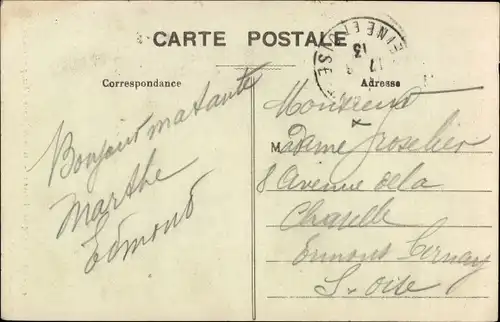 CARTE POSTALE
Correspondance
Adresse
SEINE ET OISE
17
13
Bonjour ma tante
Marthe
Edmond
Monsieur
Madame Groselier
8 Avenue de la
Chapelle
Ermont Cernay
S-oise